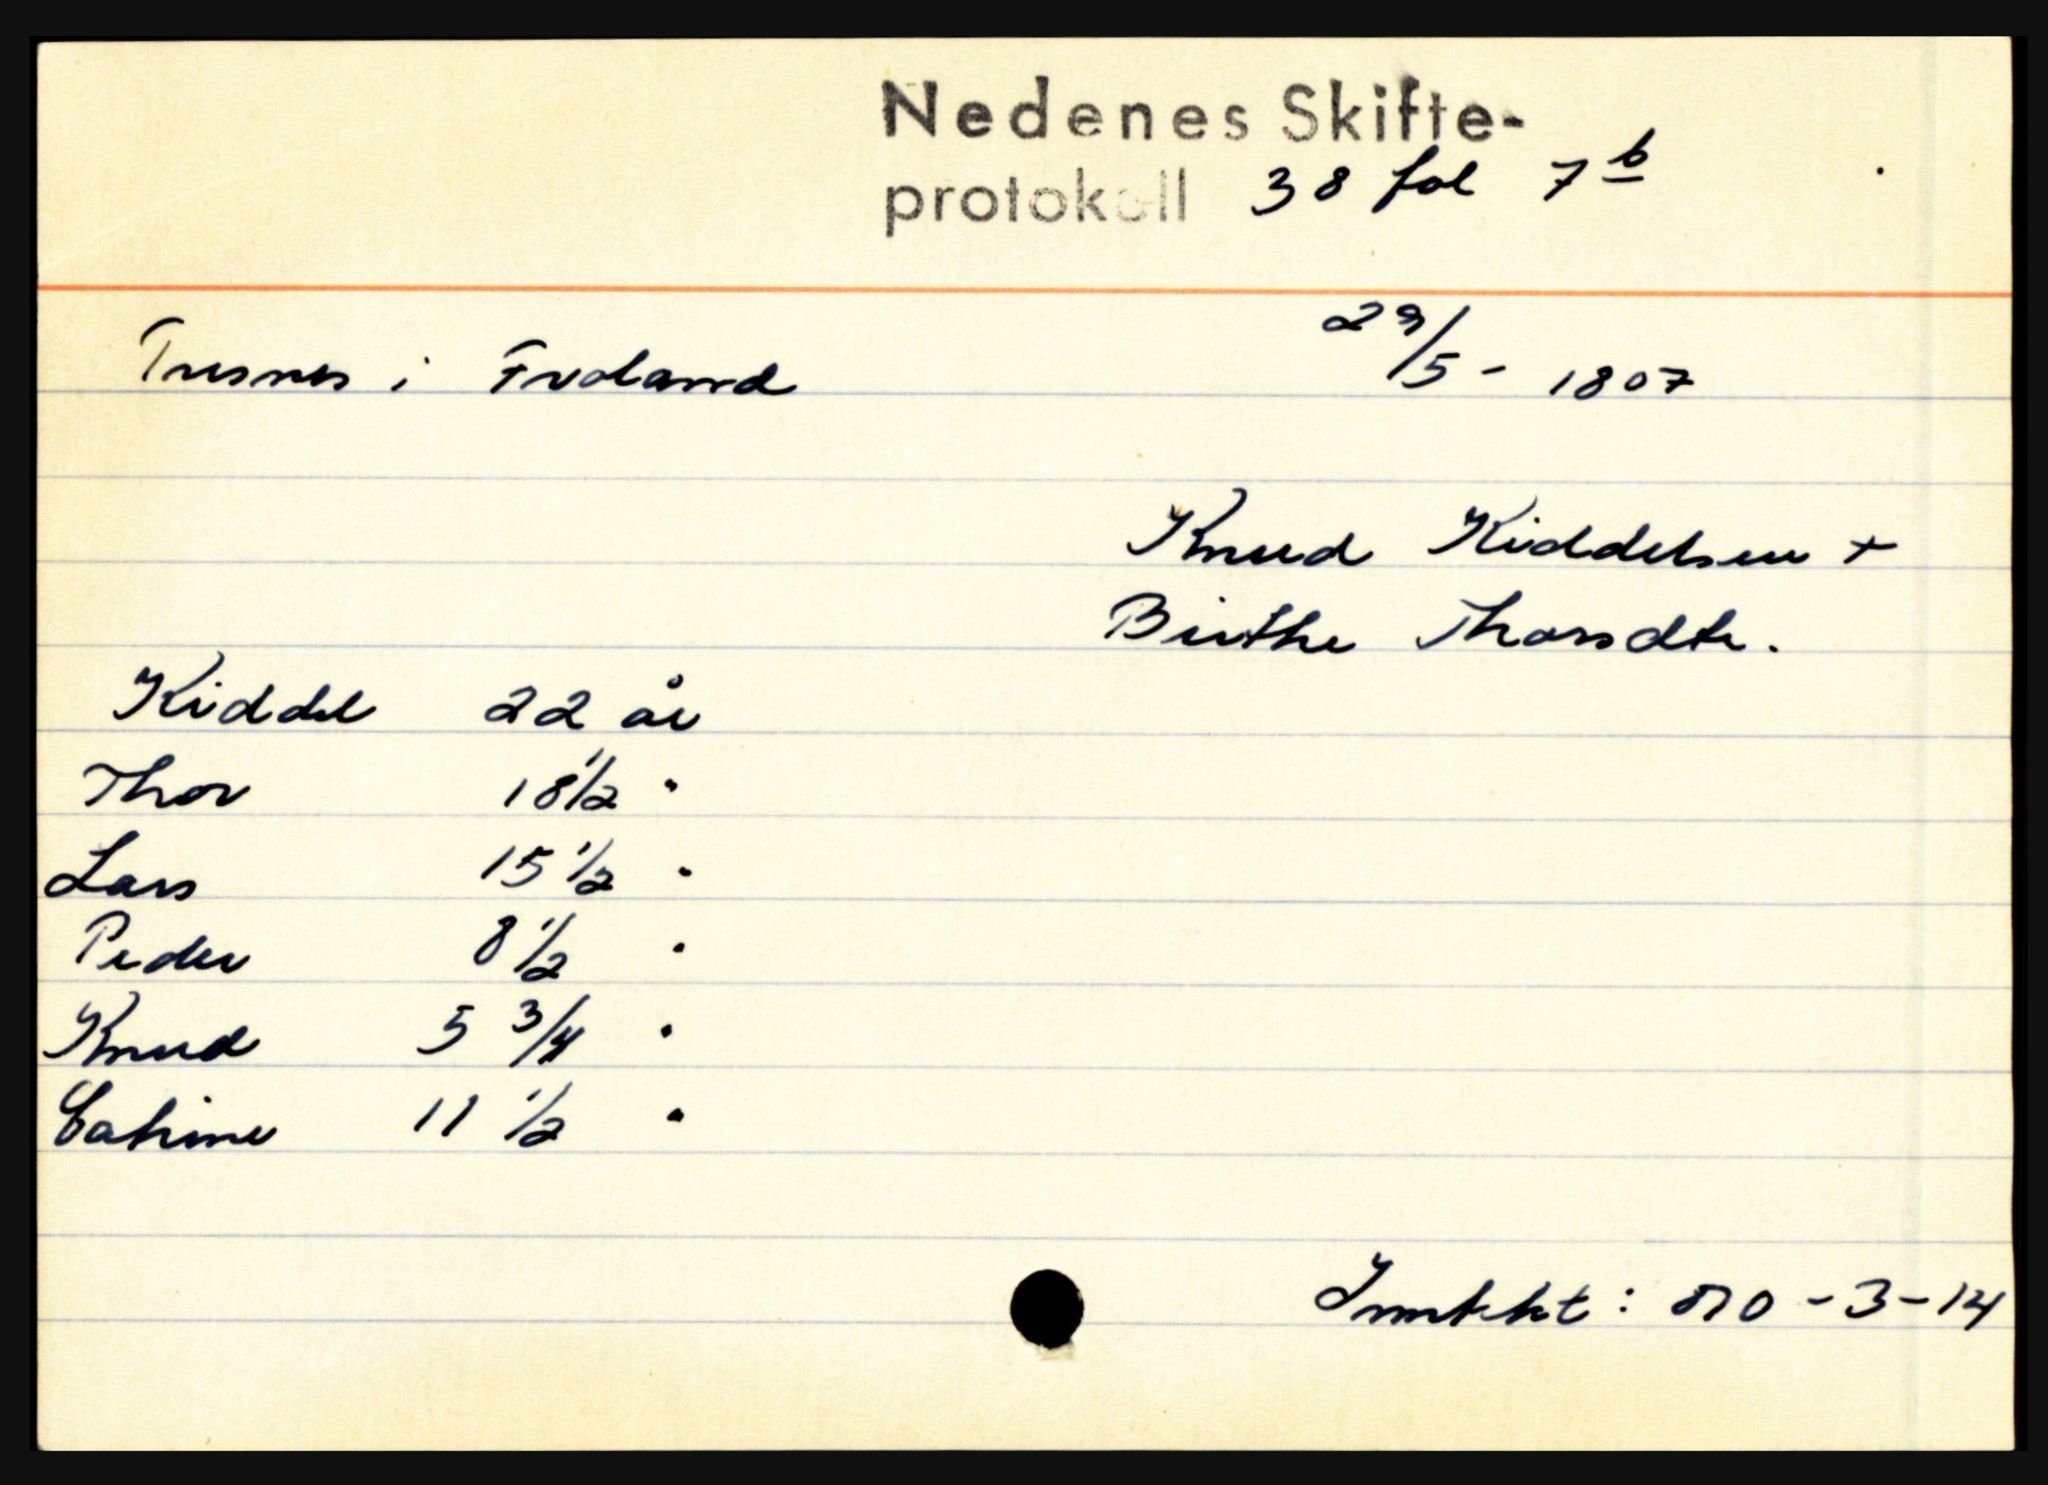 Nedenes Skifte-
protokoll 38 fol 7 b
Tresnes i Froland 29/5 - 1807
Knud Kiddelsen +
Birthe Thorsdtr.
Kiddel 22 år
Thor 18 1/2 "
Lars 15 1/2 "
Peder 8 1/2 "
Knud 5 3/4 "
Cathrine 11 1/2 "
: 810 - 3 - 14